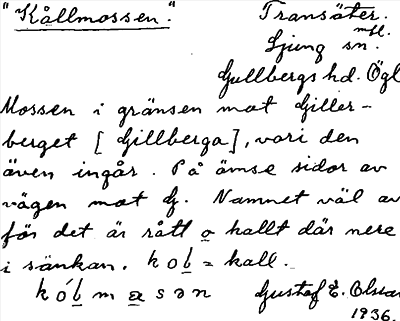 "Kållmossen." Transäter.
mfl.
Ljung sn.
Gullbergs hd. Ögl
Mossen i gränsen mot Giller-
berget [Gillberga], vari den
även ingår. På ömse sidor av
vägen mot G. Namnet väl av
för det är rått o hallt där nere
i sänkan. kob = kall.
kóbmasən Gustaf E. Olsson
1936.